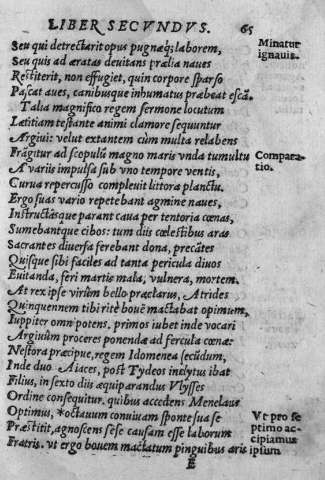 LIBER SECVNDVS. 65
Seu qui detrectarit opus pugnæq; laborem,
Minatur
ignauis.
Seu quis ad æratas deuitans prælia naues
Restiterit, non effugiet, quin corpore sparso
Pascat aues, canibusque inhumatus præbeat escã.
Talia magnifico regem sermone locutum
Lætitiam testante animi clamore sequuntur
Argiui: velut extantem cùm multa relabens
Frãgitur ad scopulũ magno maris vnda tumultu
Compara-
tio.
A variis impulsa sub vno tempore ventis,
Curua repercusso compleuit littora planctu.
Ergo suas vario repetebant agmine naues,
Instructãsque parant caua per tentoria cœnas,
Sumebántque cibos: tum diis cœlestibus aras
Sacrantes diuersa ferebant dona, precãtes
Quisque sibi faciles ad tanta pericula diuos
Euitanda, feri martis mala, vulnera, mortem.
At rex ipse virûm bello præclarus, Atrides
Quinquennem tibi ritè bouẽ mactabat opimum,
Iuppiter omnipotens. primos iubet inde vocari
Argiuûm proceres ponenda ad fercula cœnæ:
Nestora præcipue, regem Idomenea secũdum,
Inde duo Aiaces, post Tydeos inclytus ibat
Filius, in sexto diis æquiparandus Vlysses
Ordine consequitur. quibus accedens Menelaus
Optimus, *octauum conuiuam sponte sua se
Vt pro se
ptimo ac-
cipiamus
ipsum
Præstitit, agnoscens sese causam esse laborum
Fratris. vt ergo bouem mactatum pinguibus aris
E